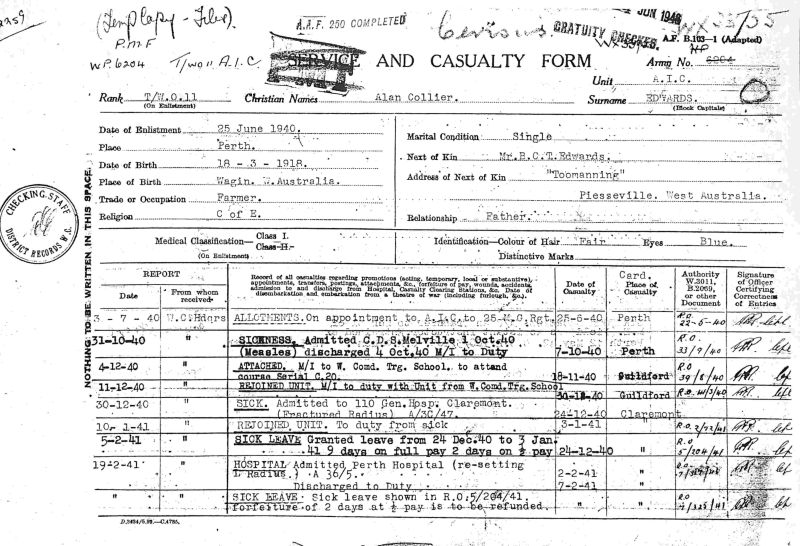 (Temp Copy - Files).
P.M.F
WP 6204 T/WO II A.I.C.
A.A.F. 250 COMPLETED
Census
GRATUITY CHECKED.
JUN 1946
WX33755
A.F. B.103—1 (Adapted)
SERVICE AND CASUALTY FORM
Army No. 6204
Unit A.I.C.
Rank T/W.O.11 Christian Names Alan Collier. Surname EDWARDS.
(On Enlistment) (Block Capitals)
Date of Enlistment 25 June 1940.
Place Perth.
Date of Birth 18 - 3 - 1918.
Place of Birth Wagin. W.Australia.
Trade or Occupation Farmer.
Religion C of E.
Marital Condition Single
Next of Kin Mr.B.C.T.Edwards.
Address of Next of Kin "Toomanning"
Piesseville. West Australia.
Relationship Father.
CHECKING STAFF
DISTRICT RECORDS W.C.
NOTHING TO BE WRITTEN IN THIS SPACE.
Medical Classification— Class I.
Class II.
(On Enlistment)
Identification—Colour of Hair Fair Eyes Blue.
Distinctive Marks
REPORT
Date From whom received
Record of all casualties regarding promotions (acting, temporary, local or substantive),
appointments, transfers, postings, attachments, &c., forfeiture of pay, wounds, accidents,
admission to and discharge from Hospital, Casualty Clearing Stations, &c. Date of
disembarkation and embarkation from a theatre of war (including furlough, &c.).
Date of Casualty
Card.
Place of Casualty
Authority W.3011, B.2069, or other Document
Signature of Officer Certifying Correctness of Entries
3 - 7 - 40 W.C.Hdqrs ALLOTMENTS. On appointment to A.I.C. to 25-M.G.Rgt. 25-6-40 Perth R.O. 22-6-40
31-10-40 " SICKNESS. Admitted C.D.S.Melville 1 Oct.40
(Measles) discharged 4 Oct.40 M/I to Duty 7-10-40 Perth R.O. 33/9/40
4-12-40 " ATTACHED. M/I to W. Comd. Trg. School. to attend
course Serial C.20. 18-11-40 Guildford R.O. 39/8/40
11-12-40 " REJOINED UNIT. M/I to duty with Unit from W.Comd.Trg.School
30-11-40 Guildford R.O.
30-12-40 " SICK. Admitted to 110 Gen.Hosp. Claremont.
(Fractured Radius) A/36/47. 24-12-40 Claremont
10- 1-41 " REJOINED UNIT. To duty from sick 3-1-41 " R.O. 2/72/41
5-2-41 " SICK LEAVE Granted leave from 24 Dec.40 to 3 Jan.
41 9 days on full pay 2 days on ½ pay 24-12-40 " R.O. 5/204/41
19-2-41 " HOSPITAL Admitted Perth Hospital (re-setting
L Radius.) A 36/5. 2-2-41 " R.O.
Discharged to Duty 7-2-41 "
" " SICK LEAVE Sick leave shown in R.O.5/204/41.
forfeiture of 2 days at ½ pay is to be refunded. " R.O. 7/325/41
D.3494/5.39.—C.4785.